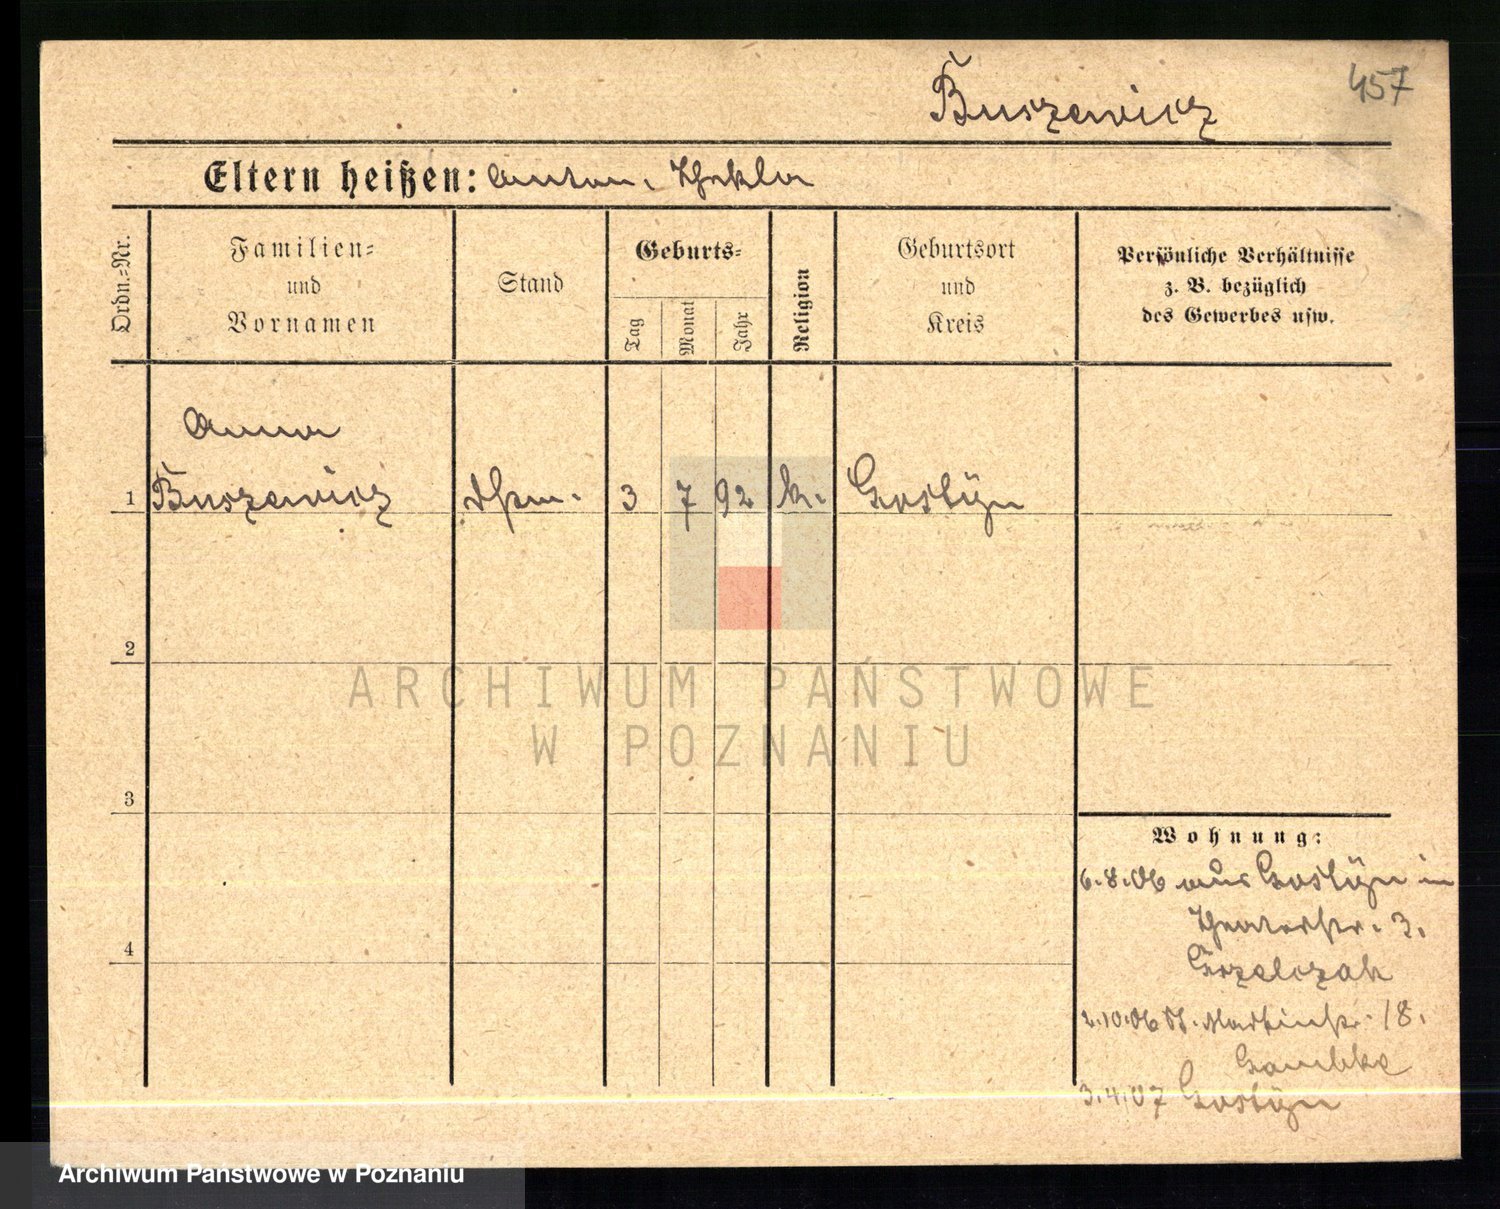 457
Buszewicz
Eltern heißen: Anton, Thekla
Ordn.-Nr.
Familien-
und
Vornamen
Stand
Geburts-
Tag
Monat
Jahr
Religion
Geburtsort
und
Kreis
Persönliche Verhältnisse
z. B. bezüglich
des Gewerbes usw.
Anna
1 Buszewicz 3 7 92 k. Gostÿn
2
3
4
Wohnung:
6.8.06 aus Gostÿn in
Theaterstr. 3.
2.10.06 St. Martinstr. 18.
3.4.07 Gostÿn
ARCHIWUM PAŃSTWOWE
W POZNANIU
Archiwum Państwowe w Poznaniu